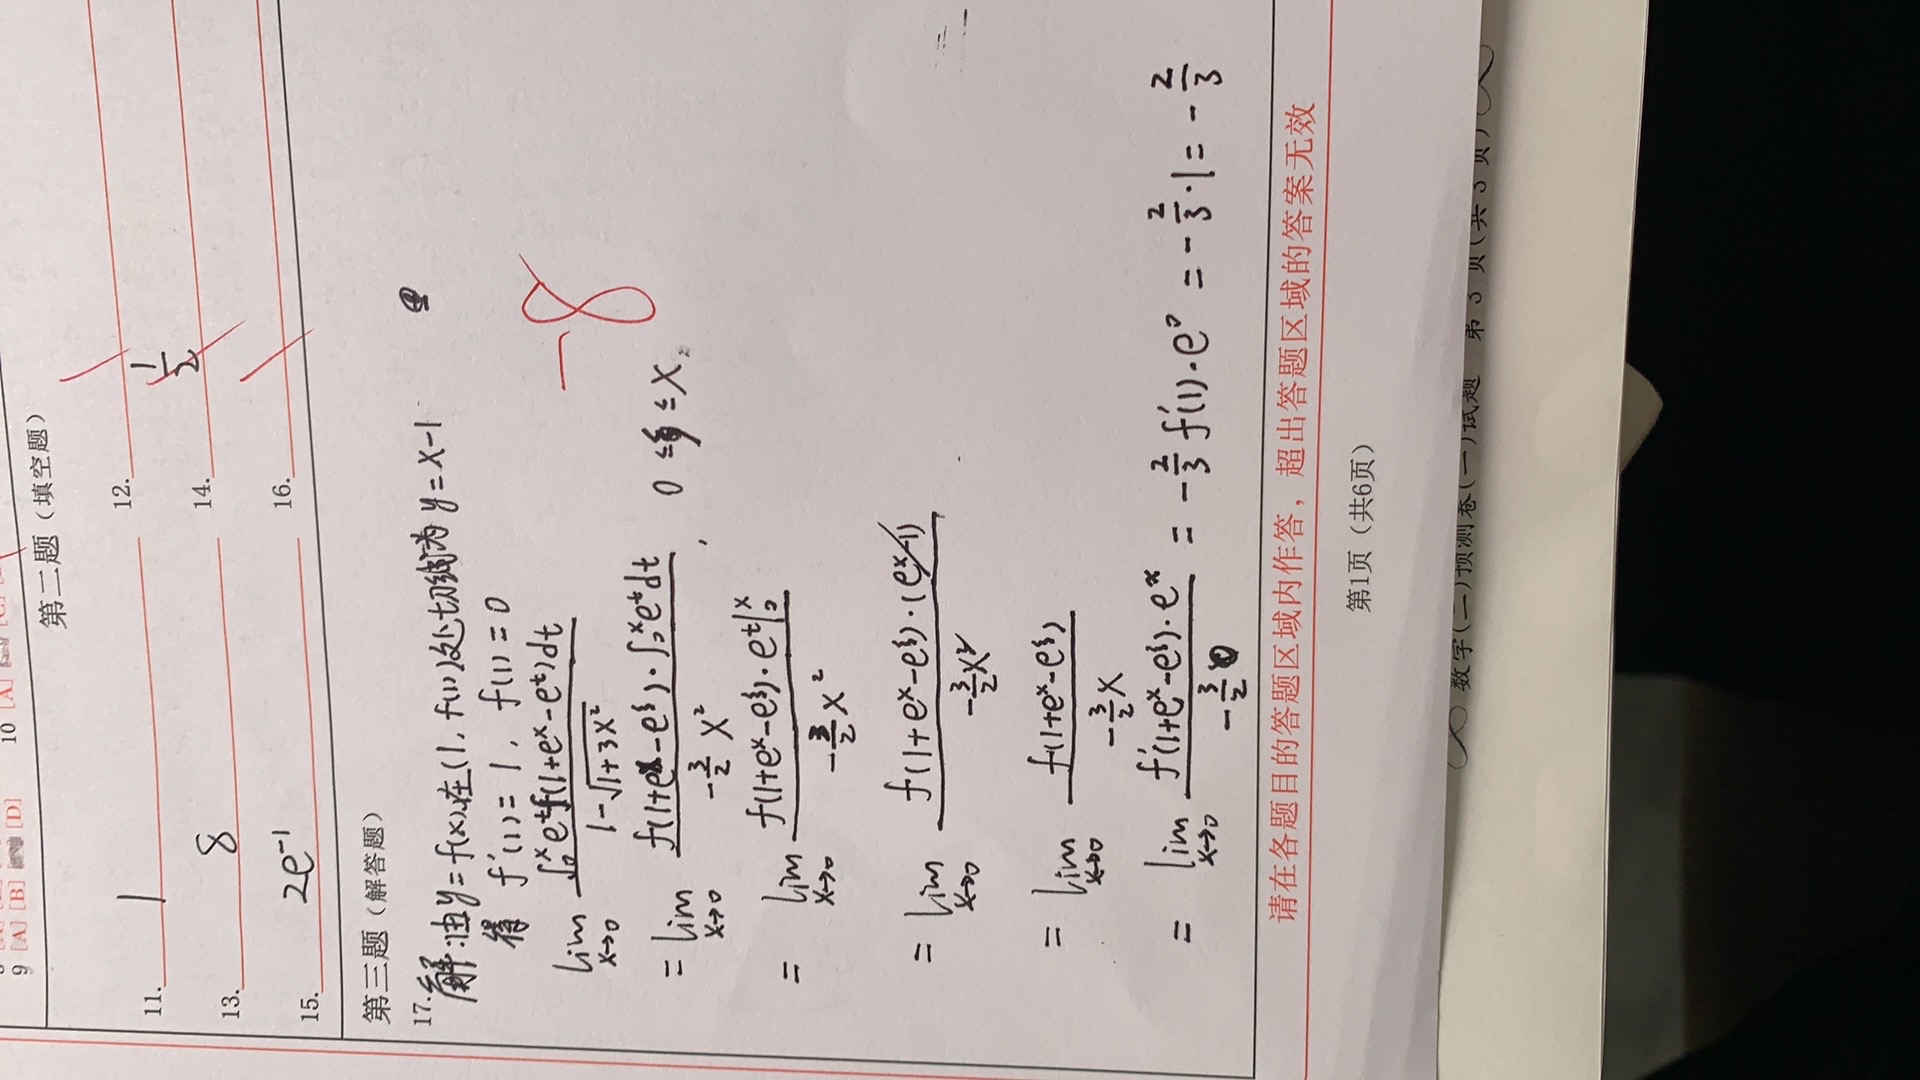 9 [A] [B] [D]
10 [A]
第二题（填空题）
11. 1
12.
13. 8
14. 1/2
15. 2e⁻¹
16.
第三题（解答题）
17. 解:由y=f(x)在(1,f(1))处切线为y=x-1
得 f'(1)=1, f(1)=0
lim x→0 ∫₀ˣ eᵗf(1+eˣ-eᵗ)dt / 1-√1+3x²
-8
= lim x→0 f(1+eˣ-e^ξ)·∫₀ˣeᵗdt / -3/2 x² , 0≤ξ≤x.
= lim x→0 f(1+eˣ-e^ξ)·eᵗ|₀ˣ / -3/2 x²
= lim x→0 f(1+eˣ-e^ξ)·(eˣ-1) / -3/2 x²
= lim x→0 f(1+eˣ-e^ξ) / -3/2 x
= lim x→0 f'(1+eˣ-e^ξ)·eˣ / -3/2 = -2/3 f'(1)·e⁰ = -2/3·1 = -2/3
请在各题目的答题区域内作答，超出答题区域的答案无效
第1页（共6页）
数学(二)预测卷(一)试题 第 3 页(共 3 页)